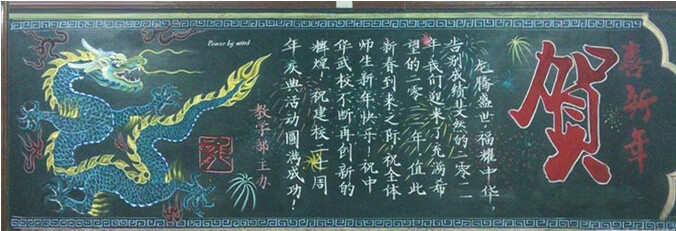 喜新年
贺
龙腾盛世福耀中华,
告别成绩斐然的二零
年我们迎来了充满希
望的二零 年值此
新春到来之际祝全体
师生新年快乐!祝中
华武校不断再创新的
辉煌!祝建校二十周
年庆典活动圆满成功!
教学部主办
Power by